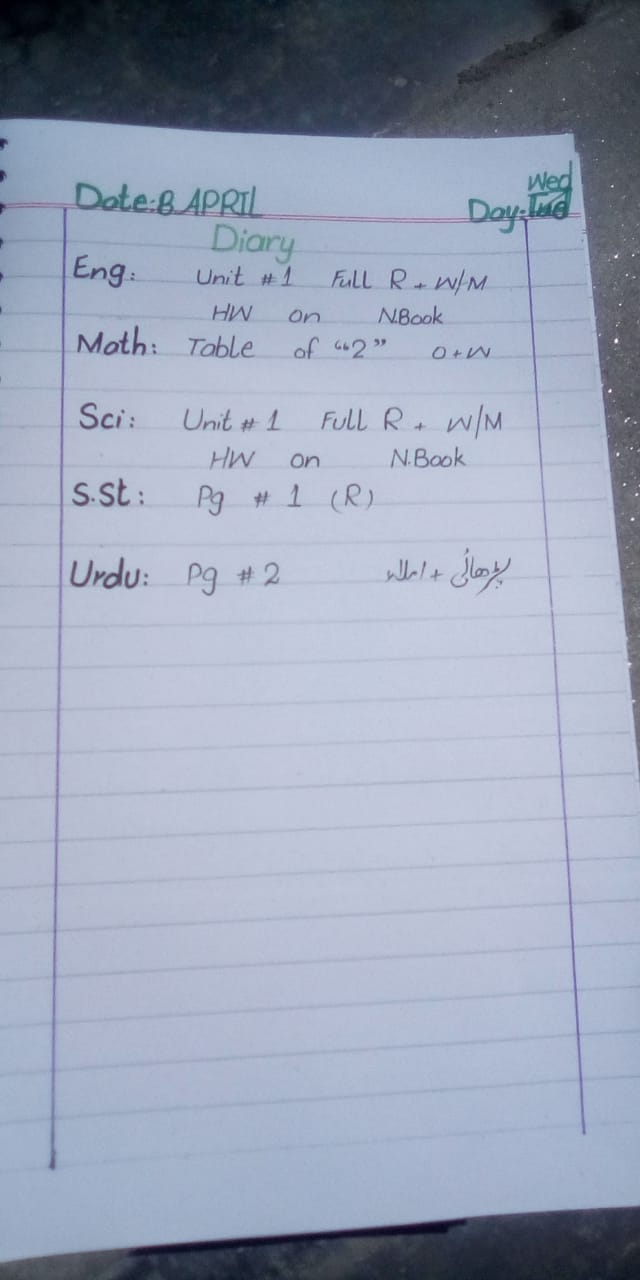 Date: 8 APRIL
Wed
Day:
Diary
Eng: Unit #1 Full R + W/M
HW on N.Book
Math: Table of "2" O+W
Sci: Unit #1 Full R + W/M
HW on N.Book
S.St: Pg #1 (R)
Urdu: Pg #2 پڑھائی + املا